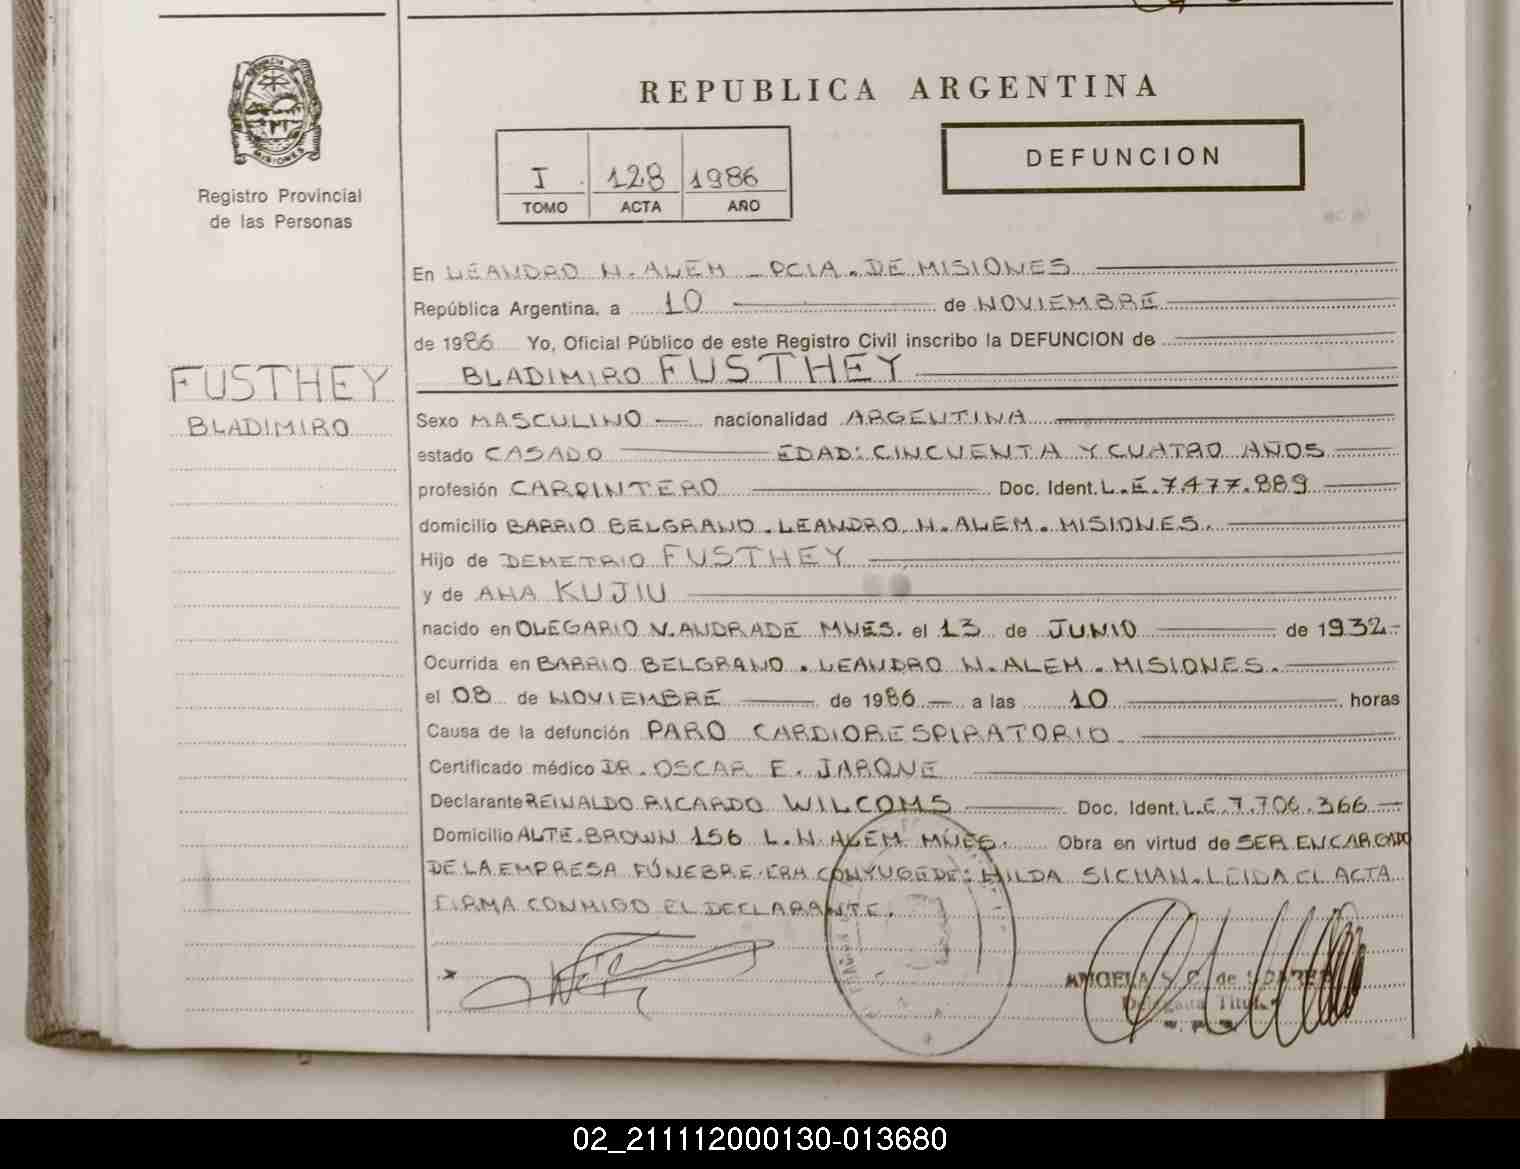 PROVINCIA DE
MISIONES
Registro Provincial
de las Personas
REPUBLICA ARGENTINA
DEFUNCION
I 128 1986
TOMO ACTA AÑO
En LEANDRO N. ALEM - PCIA. DE MISIONES
República Argentina, a 10 de NOVIEMBRE
de 1986 Yo, Oficial Público de este Registro Civil inscribo la DEFUNCION de
BLADIMIRO FUSTHEY
FUSTHEY
BLADIMIRO
Sexo MASCULINO nacionalidad ARGENTINA
estado CASADO EDAD: CINCUENTA Y CUATRO AÑOS
profesión CARPINTERO Doc. Ident. L.E. 7.477.889
domicilio BARRIO BELGRANO. LEANDRO N. ALEM. MISIONES.
Hijo de DEMETRIO FUSTHEY
y de ANA KUJIU
nacido en OLEGARIO V. ANDRADE MNES. el 13 de JUNIO de 1932-
Ocurrida en BARRIO BELGRANO. LEANDRO N. ALEM. MISIONES.
el 08 de NOVIEMBRE de 1986 a las 10 horas
Causa de la defunción PARO CARDIORESPIRATORIO.
Certificado médico DR. OSCAR E. JARQUE
Declarante REINALDO RICARDO WILCOMS Doc. Ident. L.E. 7.706.366
Domicilio ALTE. BROWN 156 L.N. ALEM MNES. Obra en virtud de SER ENCARGADO
DE LA EMPRESA FÚNEBRE. ERA CONYUGE DE: HILDA SICHAN. LEIDA EL ACTA
FIRMA CONMIGO EL DECLARANTE.
ANGELA S. C. de
Delegada Titular
02_211112000130-013680